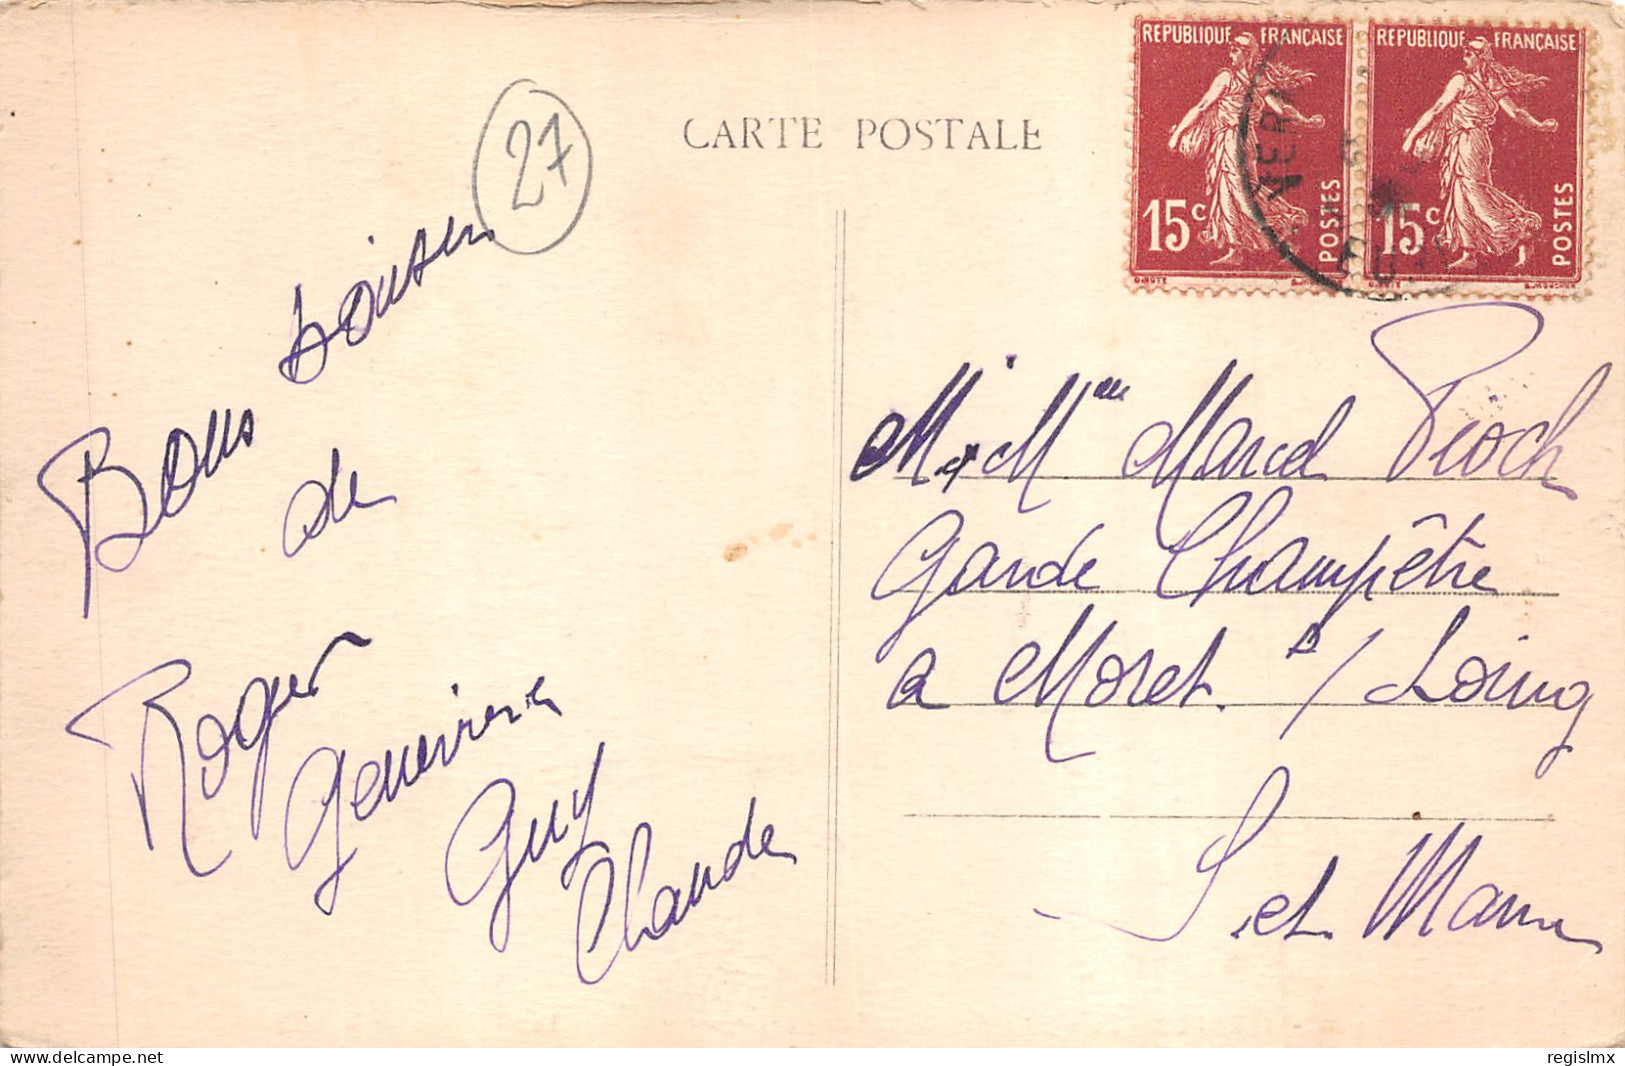 RÉPUBLIQUE FRANÇAISE
15c POSTES
RÉPUBLIQUE FRANÇAISE
15c POSTES
CARTE POSTALE
27
Bons baisers
de
Roger
Geneviève
Guy
Claude
M. & Mme Marcel Pioch
Garde Champêtre
a Moret s/ Loing
S. et Marne
delcampe.net
regislmx